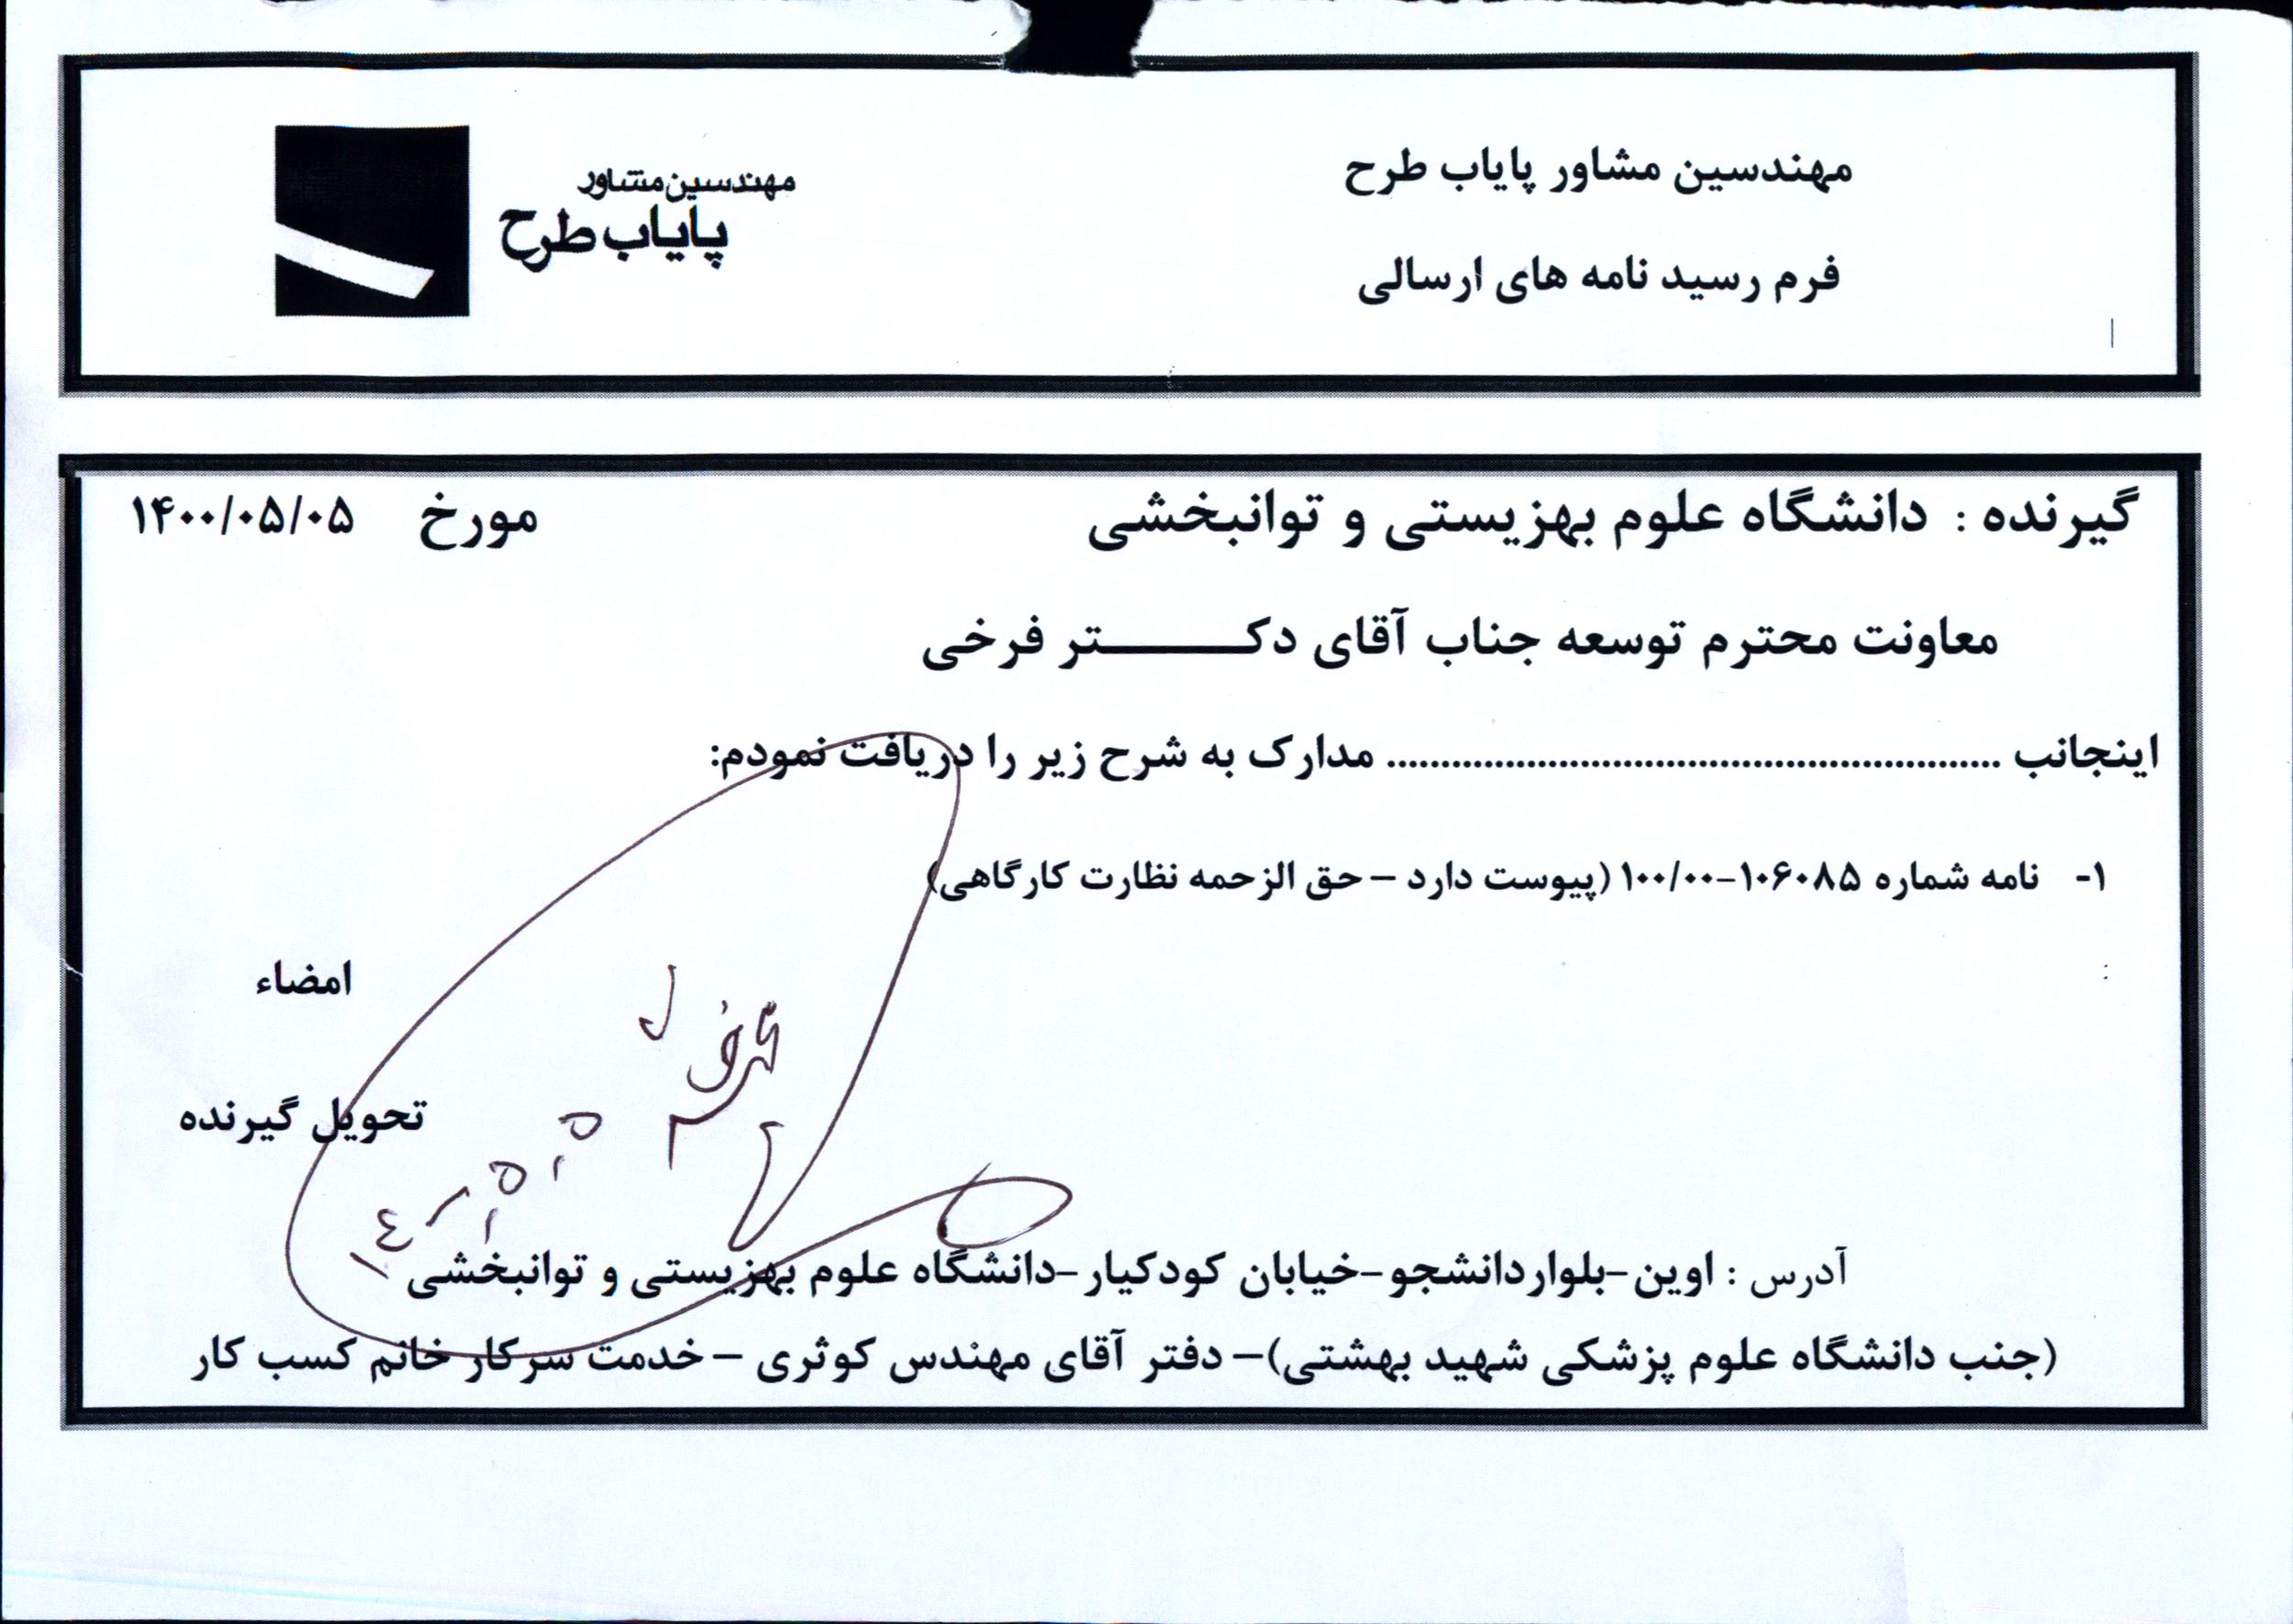 مهندسین مشاور پایاب طرح
فرم رسید نامه های ارسالی
مهندسین مشاور
پایاب طرح
گیرنده : دانشگاه علوم بهزیستی و توانبخشی مورخ ۱۴۰۰/۰۵/۰۵
معاونت محترم توسعه جناب آقای دکـــــــتر فرخی
اینجانب ........................................................ مدارک به شرح زیر را دریافت نمودم:
۱- نامه شماره ۱۰۶۰۸۵-۱۰۰/۰۰ (پیوست دارد – حق الزحمه نظارت کارگاهی)
امضاء
تحویل گیرنده
۱۴۰۰/۰۵/۰۵
آدرس : اوین-بلواردانشجو-خیابان کودکیار-دانشگاه علوم بهزیستی و توانبخشی
(جنب دانشگاه علوم پزشکی شهید بهشتی)– دفتر آقای مهندس کوثری –خدمت سرکار خانم کسب کار